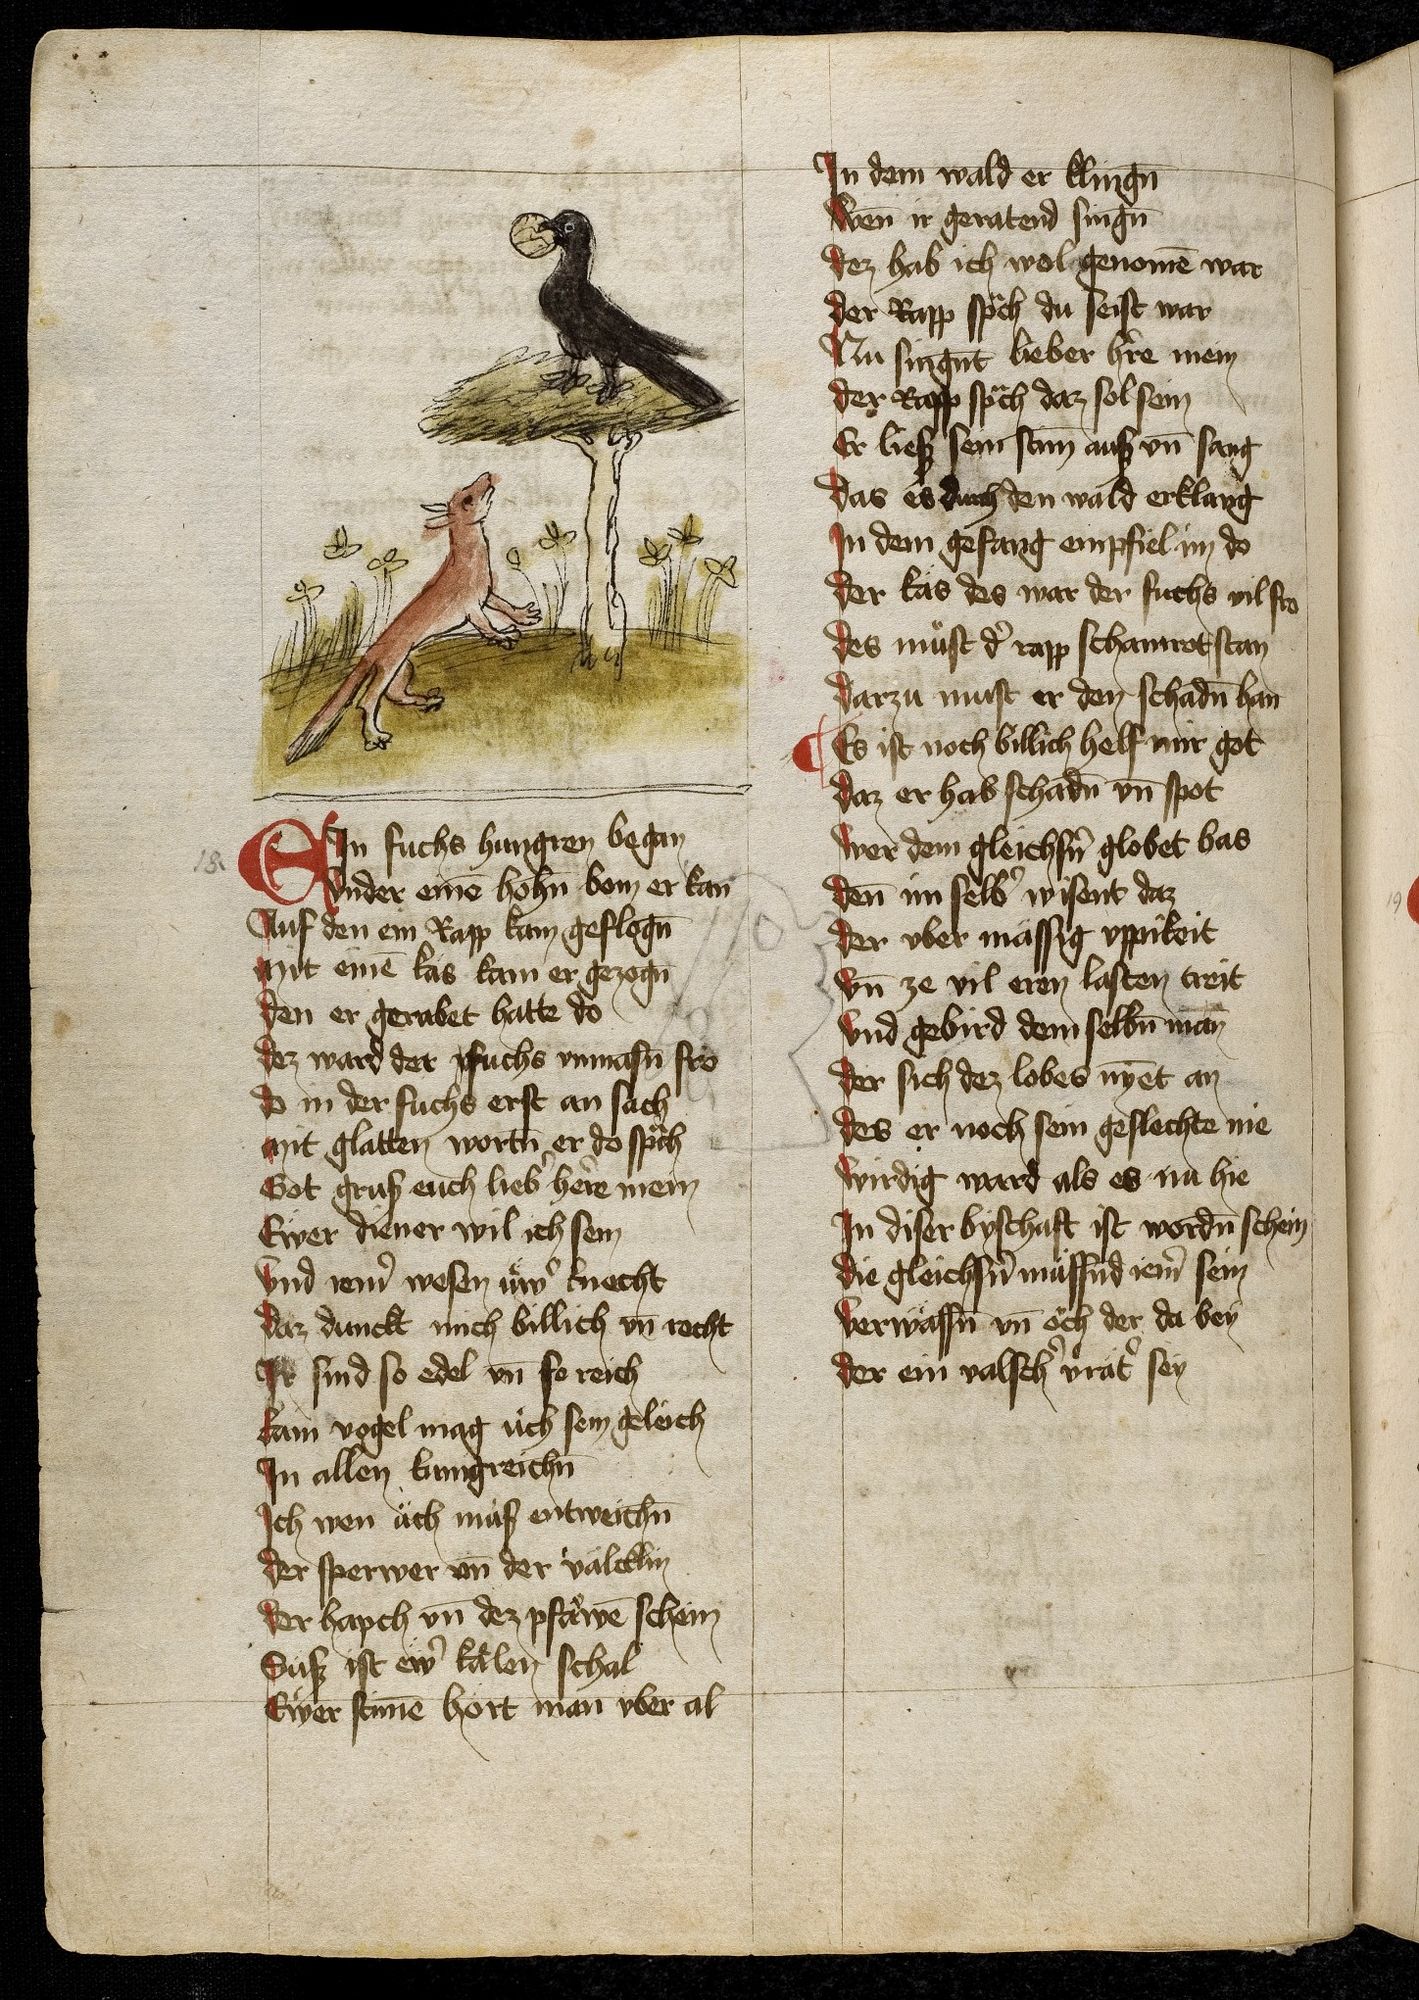 18
EIn fuchs hungren began
Vnder einē hohn̄ bom er kan
Auf den ein Rapp kam geflogn̄
mit einē käs kam er gezogn̄
den er gerabet hatte do
dez ward der fuchs vnmasn̄ fro
do in der fuchs erst an sach
mit glatten wortn̄ er do spͣch
Got grus euch lieb᾽ here mein
Ewer diener wil ich sein
Vnd iem᾽ wesen üw᾽ knecht
daz dunckt mich billich vn̄ recht
Ir sind so edel vn̄ so reich
kain vogel mag üch sein geleich
In allen kungreichn̄
Ich wen üch müs entweichn̄
der sperwer vn̄ der välcklin
der hapch vn̄ dez pfäwē schein
Süß ist ew᾽ kälen schal
Ewer stimē hort man vber al
In dem wald er klingn̄
Wen̄ ir geratend singn̄
dez hab ich wol genomē war
der Rapp spͣch du seist war
Nu singn̄t lieber h᾽re mein
der Rapp spͣch daz sol sein
Er ließ sein stim̄ auß vn̄ sang
das es durch den wald erklang
In dem gesang empfiel im do
der käs des war der fuchs vil fro
des müst d᾽ rapp schamrot stan
darzu must er den schadn̄ han
Es ist noch billich helf mir got
daz er hab schadn̄ vn̄ spot
wer dem gleichsn᾽ globet bas
den̄ im selb᾽ wisent daz
der vber mässig vppikeit
vn̄ ze vil eren lasten treit
Vnd gebird dem selbn̄ man̄
der sich dez lobes nȳet an
des er noch sein geslechte nie
wirdig ward als es nu hie
In diser byschaft ist wordn̄ schein
die gleichsn᾽ müssn̄d iem᾽ sein
verwässn̄ vn̄ öch der da bey
der ein valsch᾽ vrät᾽ sey
19